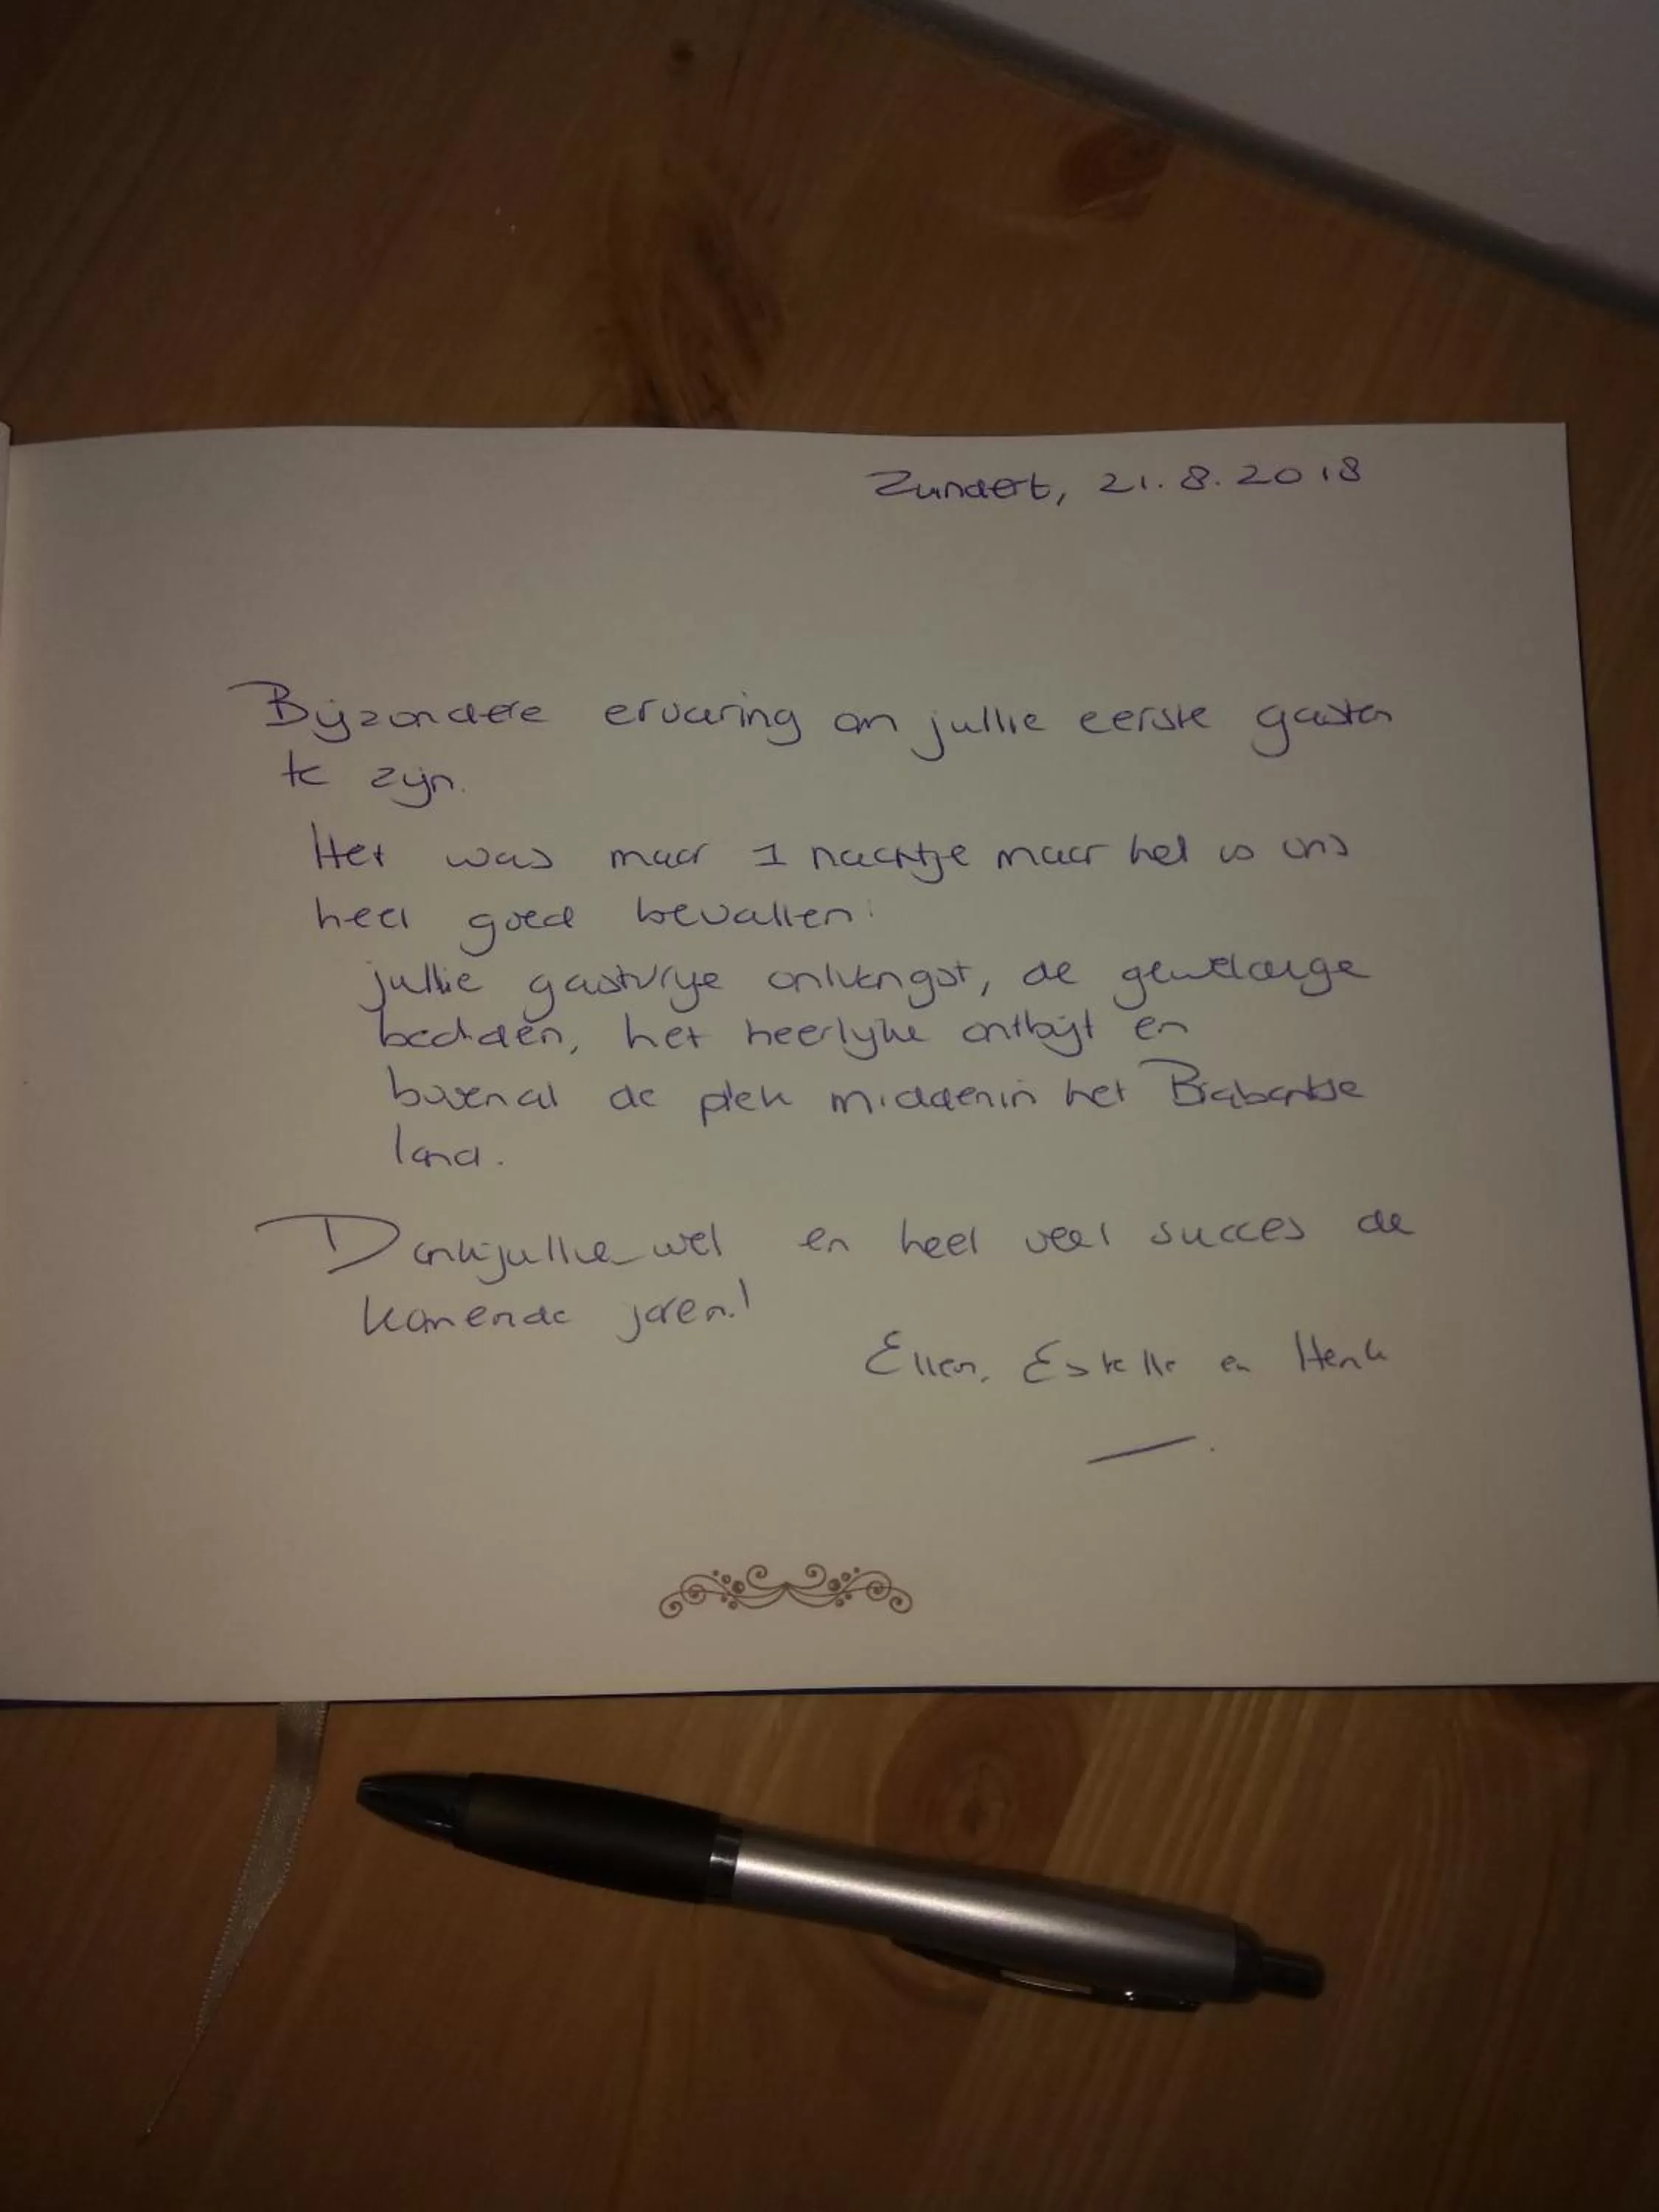 Zundert, 21.8.2018
Bijzondere ervaring om jullie eerste gasten
te zijn.
Het was maar 1 nachtje maar het is ons
heel goed bevallen:
jullie gastvrije ontvangst, de geweldige
bedden, het heerlijke ontbijt en
bovenal de plek middenin het Brabantse
land.
Dankjullie wel en heel veel succes de
komende jaren!
Ellen, Estelle en Henk